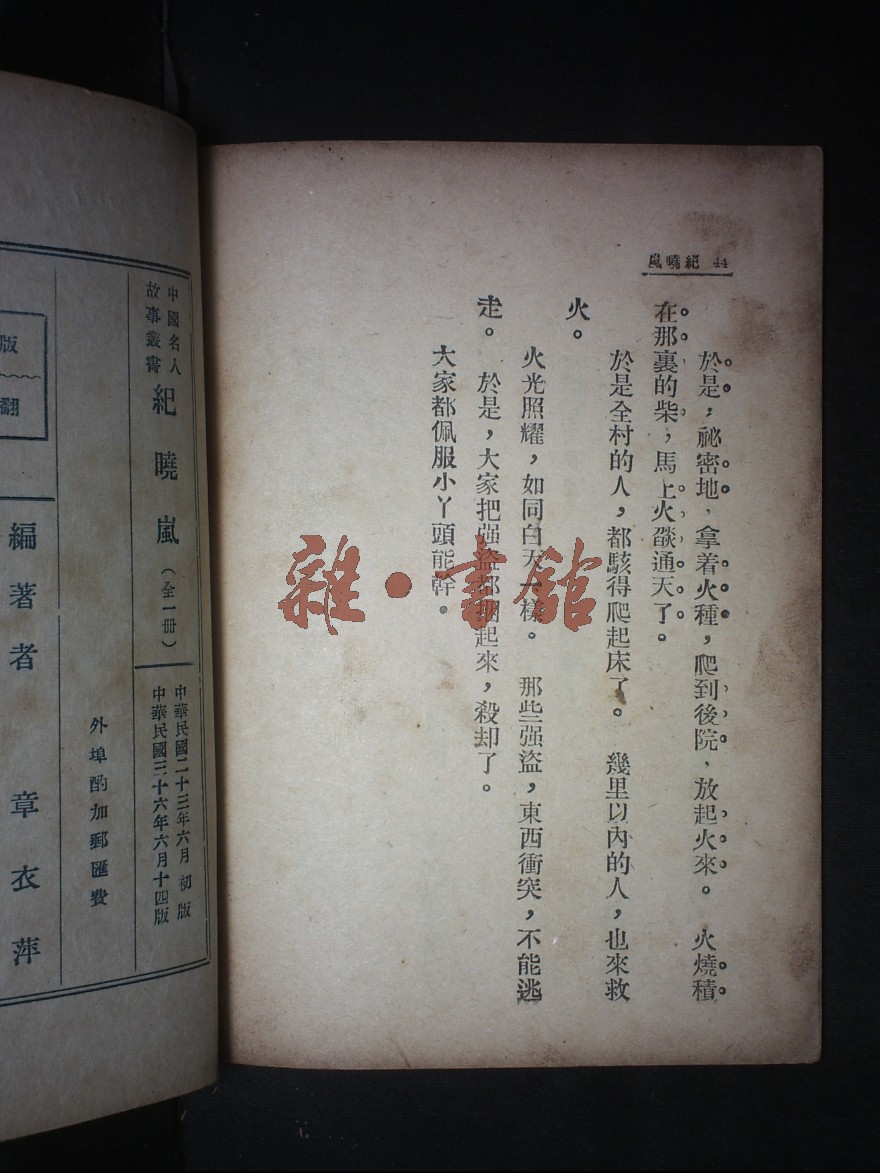 嵐曉紀 44
於是，祕密地，拿着火種，爬到後院，放起火來。　火燒積
在那裏的柴，馬上火燄通天了。
於是全村的人，都駭得爬起床了。　幾里以內的人，也來救
火。
火光照耀，如同白天一樣。　那些强盜，東西衝突，不能逃
走。　於是，大家把强盜都捆起來，殺却了。
大家都佩服小丫頭能幹。
雜·書舘
中國名人
故事叢書
紀曉嵐（全一冊）
中華民國二十三年六月初版
中華民國三十六年六月十四版
外埠酌加郵匯費
版
翻
編著者　章衣萍